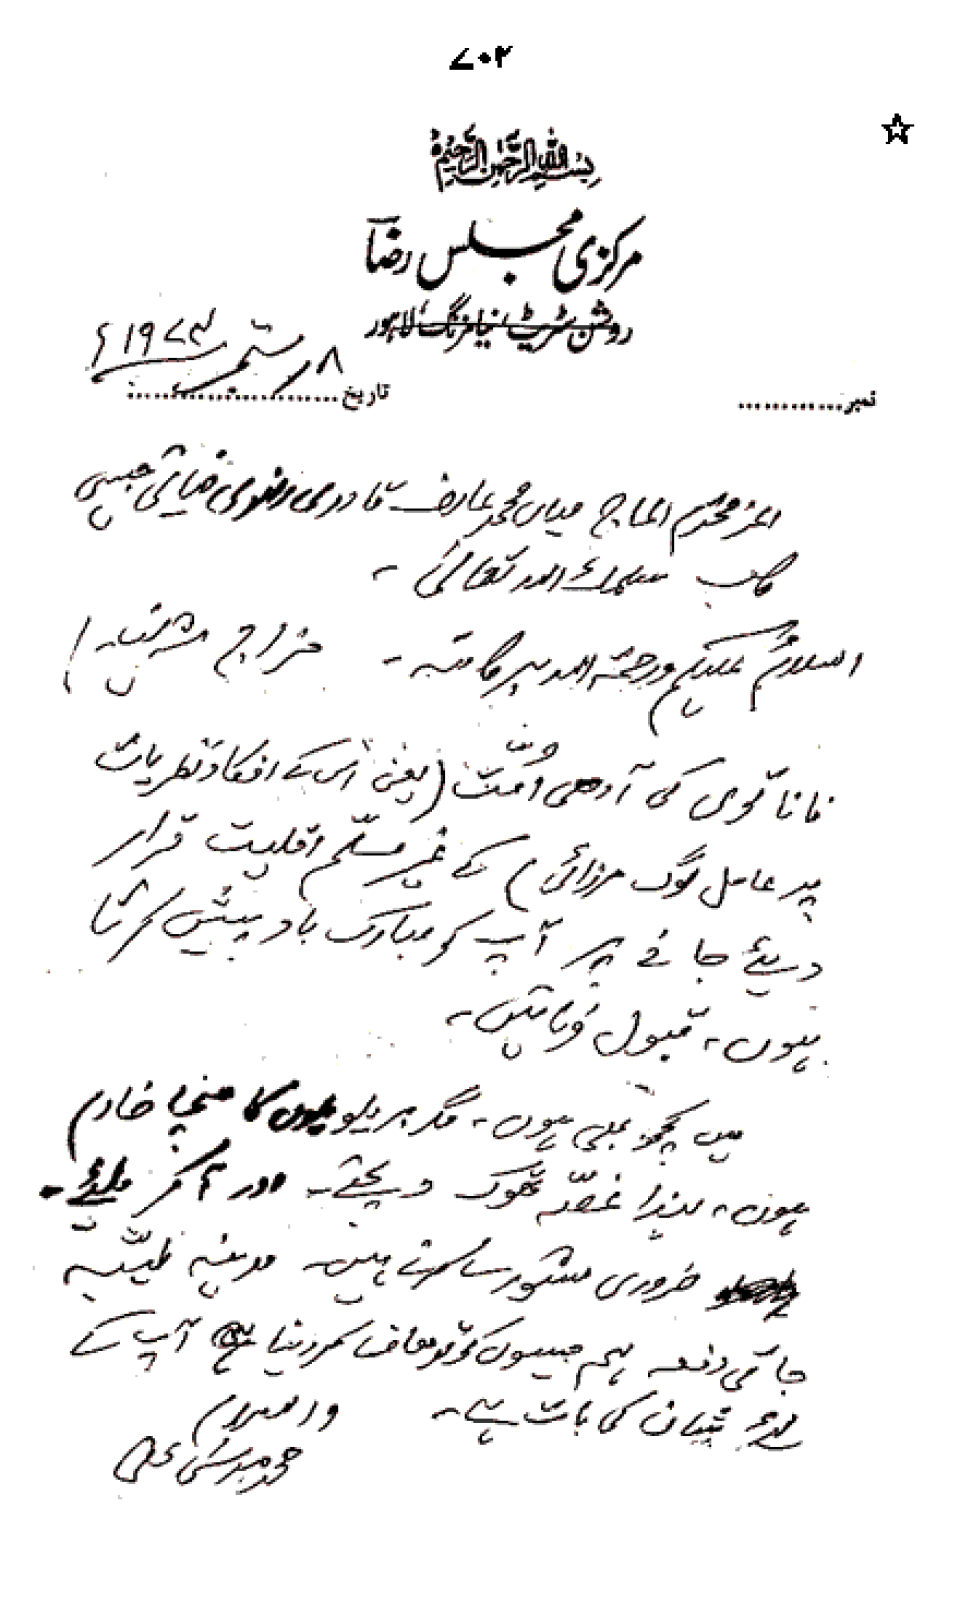 ۷۰۲
☆
بسم اللہ الرحمن الرحیم
مرکزی مجلس رضا
روشن سٹریٹ، نیا مزنگ، لاہور
نمبر............ تاریخ ۸ ستمبر ۱۹۷۴ء
محترم الحاج میاں محمد عارف قادری رضوی ضیائی
صاحب سلمک اللہ تعالیٰ ۔
السلام علیکم ورحمۃ اللہ برکاتہ ۔ مزاج شریف!
نانا توی کی آدھی اُمّت (یعنی اُس کے افکار و نظریات
پر عامل لوگ مرزائی) کے غیر مسلّم اقلیت قرار
دیئے جانے پر آپ کو مبارک باد پیش کرتا
ہوں ۔ قبول فرمائیں ۔
میں کچھ بھی ہوں ۔ مگر بریلویوں کا خادم
ہوں ۔ لہٰذا غصّہ تھوک دیجئے ۔ اور آ کر ملیئے ۔
ضروری مشورے کرنے ہیں ۔ مدینہ طیّبہ
جاتی دفعہ ہم جیسوں کو تو معاف کر دینا ہی آپ کے
لئے شان کی بات ہے ۔
والسلام
محمد موسیٰ عفی